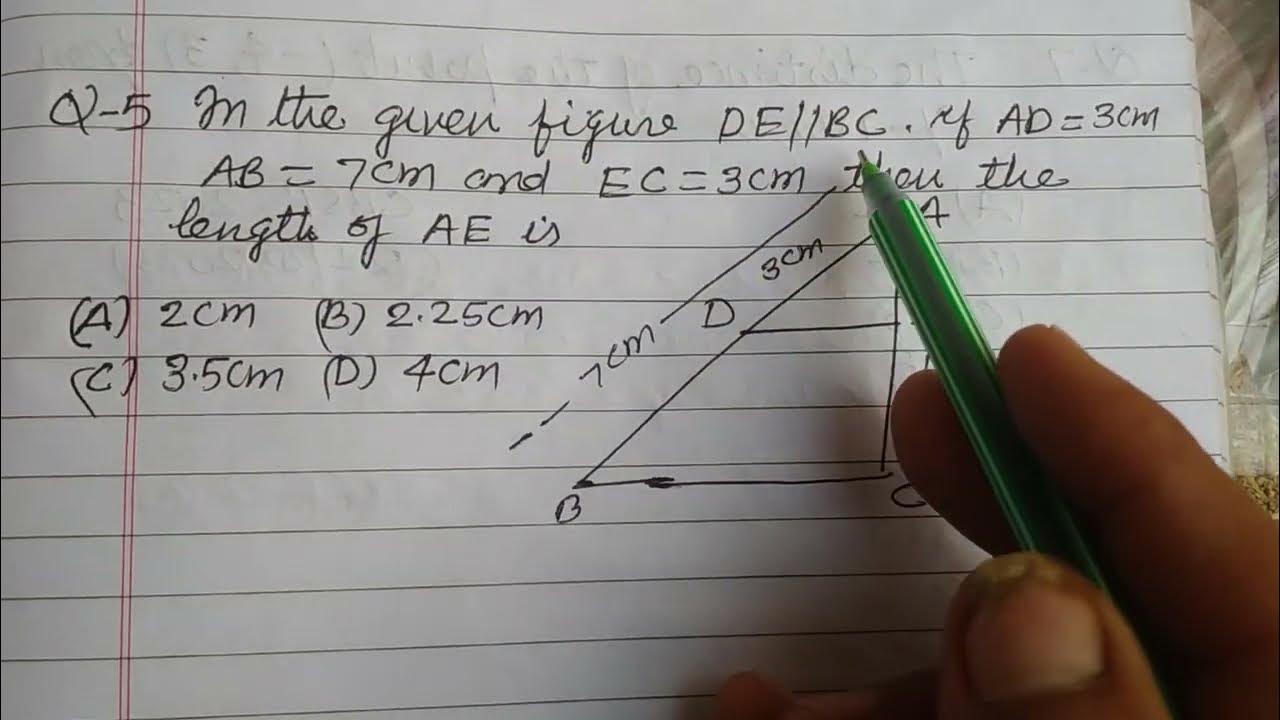 Q-5 In the given figure DE//BC. If AD = 3cm
AB = 7cm and EC = 3cm then the
length of AE is
(A) 2cm (B) 2.25cm
(C) 3.5cm (D) 4cm
A
3cm
D
7cm
B
C